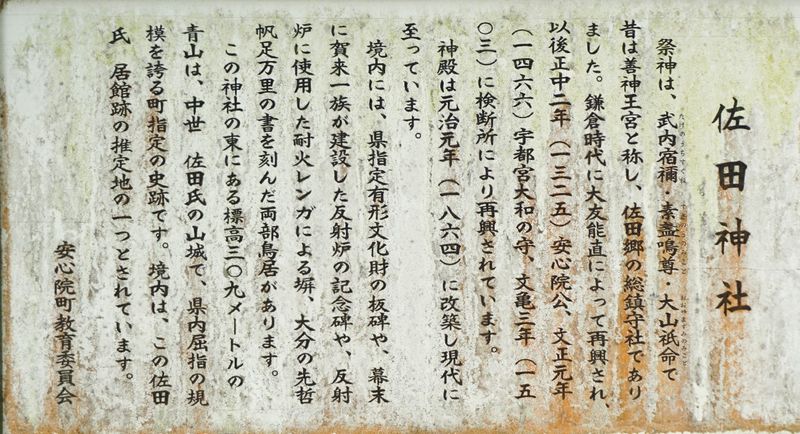 佐田神社
祭神は、武内宿禰・素盞嗚尊・大山祇命で
昔は善神王宮と称し、佐田郷の総鎮守社であり
ました。鎌倉時代に大友能直によって再興され、
以後正中二年（一三二五）安心院公、文正元年
（一四六六）宇都宮大和の守、文亀三年（一五
〇三）に検断所により再興されています。
神殿は元治元年（一八六四）に改築し現代に
至っています。
境内には、県指定有形文化財の板碑や、幕末
に賀来一族が建設した反射炉の記念碑や、反射
炉に使用した耐火レンガによる塀、大分の先哲
帆足万里の書を刻んだ両部鳥居があります。
この神社の東にある標高三〇九メートルの
青山は、中世　佐田氏の山城で、県内屈指の規
模を誇る町指定の史跡です。境内は、この佐田
氏　居館跡の推定地の一つとされています。
安心院町教育委員会